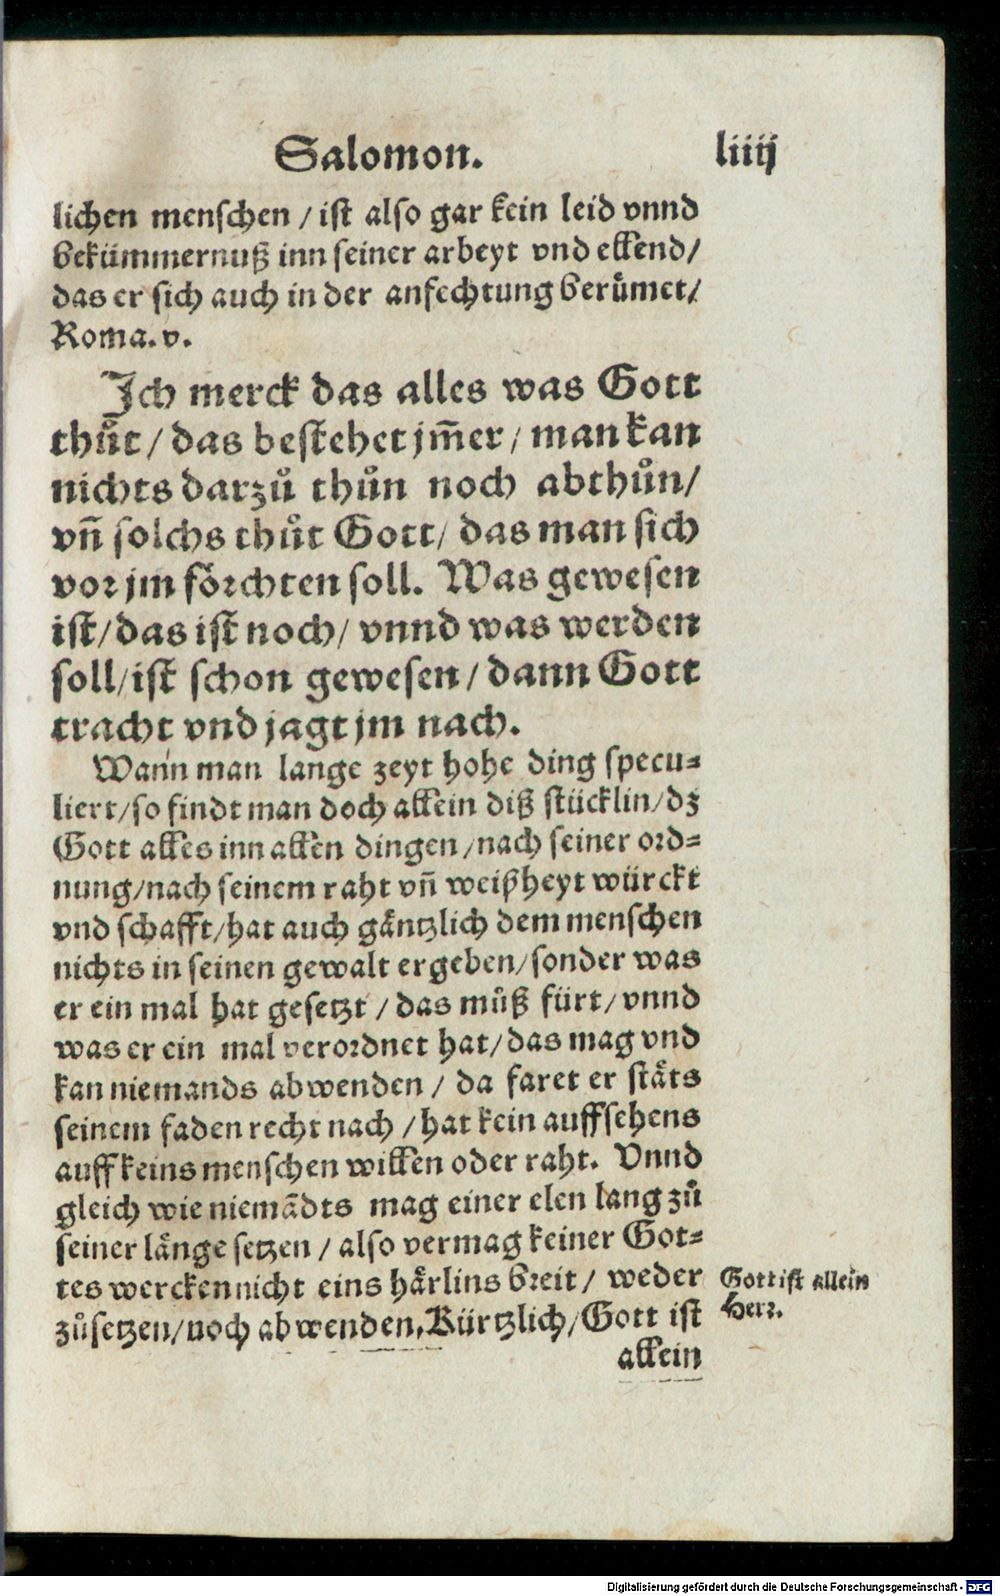 Salomon. liiij
lichen menschen / ist also gar kein leid vnnd
bekümmernuß inn seiner arbeyt vnd ellend/
das er sich auch in der anfechtung berůmet/
Roma. v.
Ich merck das alles was Gott
thůt / das bestehet jm̃er / man kan
nichts darzů thůn noch abthůn/
vñ solchs thůt Gott/ das man sich
vor jm fo̊rchten soll. Was gewesen
ist/ das ist noch/ vnnd was werden
soll/ist schon gewesen / dann Gott
tracht vnd jagt jm nach.
Wann man lange zeyt hohe ding specu⸗
liert/so findt man doch allein diß stücklin/dz
Gott alles inn allen dingen /nach seiner ord⸗
nung/nach seinem raht vñ weißheyt würckt
vnd schafft/hat auch gäntzlich dem menschen
nichts in seinen gewalt ergeben/sonder was
er ein mal hat gesetzt / das můß fürt/ vnnd
was er ein mal verordnet hat/das mag vnd
kan niemands abwenden / da faret er stäts
seinem faden recht nach / hat kein auffsehens
auff keins menschen willen oder raht. Vnnd
gleich wie niemãdts mag einer elen lang zů
seiner länge setzen / also vermag keiner Got⸗
tes wercken nicht eins härlins breit / weder
zůsetzen/noch abwenden. Kürtzlich/Gott ist
allein
Gott ist allein
Herr.
Digitalisierung gefördert durch die Deutsche Forschungsgemeinschaft - DFG